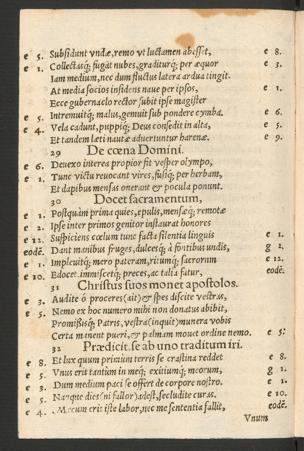 e 5. Subsidunt vndæ, remo vt luctamen abesset, e 8.
e 1. Collectasq́; fugat nubes, graditurq́; per æquor e 3.
Iam medium, nec dum fluctus latera ardua tingit.
At media socios insidens naue per ipsos, e 1.
Ecce gubernaclo rector subit ipse magister
e 5. Intremuitq́; malus, gemuit sub pondere cymba. e 6.
e 4. Vela cadunt, puppiq́; Deus consedit in alta, e 5.
Et tandem læti nautæ aduertuntur harenæ. e 9.
29 De cœna Domini.
e 6. Deuexo interea propior fit vesper olympo,
e 1. Tunc victu reuocant vires, fusiq́; per herbam,
Et dapibus mensas onerant & pocula ponunt.
30 Docet sacramentum,
e 1. Postquàm prima quies, epulis, mensæq́; remotæ
e 2. Ipse inter primos genitor instaurat honores
e 12. Suspiciens cœlum tunc facta silentia linguis e 1.
eodē. Dant manibus fruges, dulcesq́; à fontibus undis, g 2.
e 1. Impleuitq́; mero pateram, ritumq́; sacrorum e 12.
e 10. Edocet, immiscetq́; preces, ac talia fatur, eodē.
31 Christus suos monet apostolos.
e 3. Audite ô proceres (ait) & spes discite vestras,
e 5. Nemo ex hoc numero mihi non donatus abibit,
Promissisq́; Patris, vestra (inquit) munera vobis
Certa manent pueri, & palmam mouet ordine nemo. e 5:
32 Prædicit se ab uno traditum iri.
e 8. Et lux quum primùm terris se crastina reddet e 8.
e 5. Vnus erit tantùm in meq́; exitiumq́; meorum, g 1.
e 3. Dum medium paci se offert de corpore nostro. e 1.
e 5. Nanque dies (ni fallor) adest, secludite curas. e 10.
e 4. Mecum erit iste labor, nec me sententia fallit, eodē.
Vnum